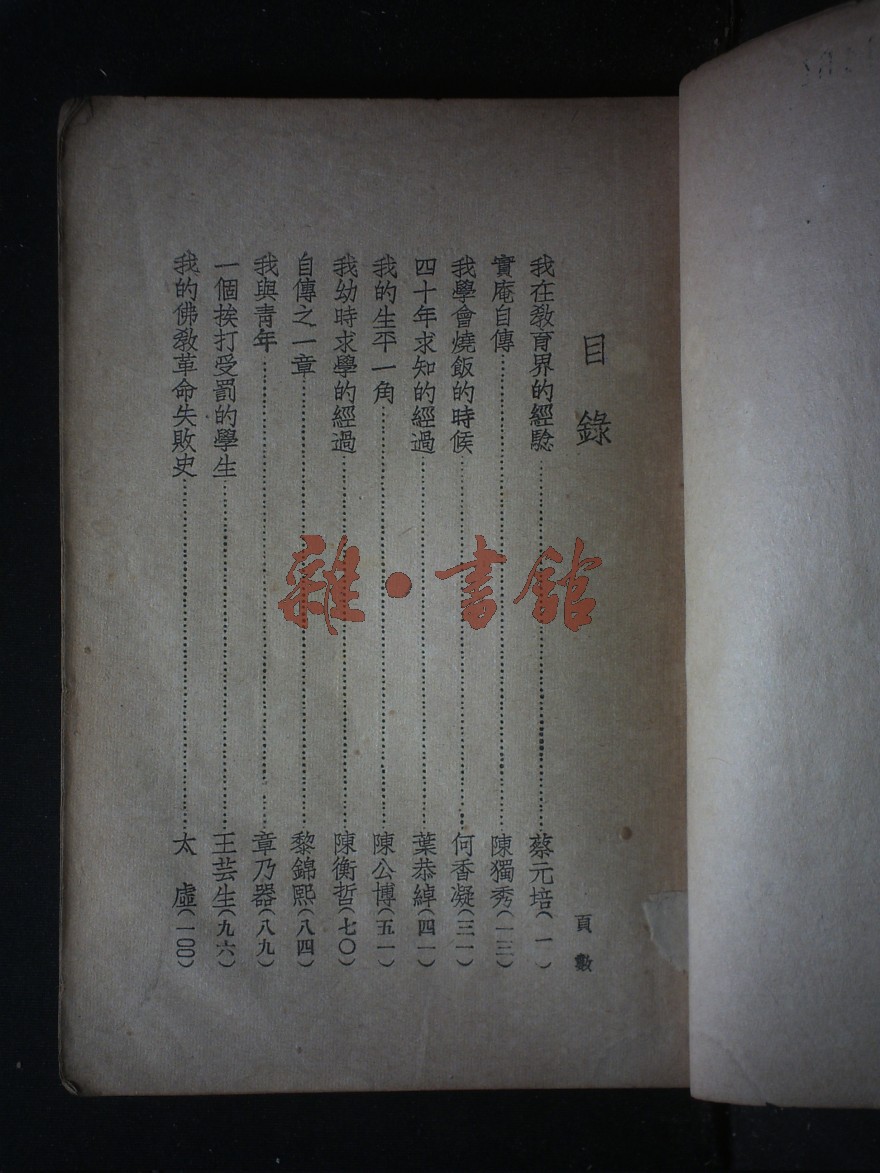 目錄
頁數
我在敎育界的經驗……蔡元培(一)
實庵自傳……陳獨秀(一三)
我學會燒飯的時候……何香凝(三一)
四十年求知的經過……葉恭綽(四一)
我的生平一角……陳公博(五一)
我幼時求學的經過……陳衡哲(七〇)
自傳之一章……黎錦熙(八四)
我與靑年……章乃器(八九)
一個挨打受罰的學生……王芸生(九六)
我的佛敎革命失敗史……太虛(一〇〇)
雜·書館